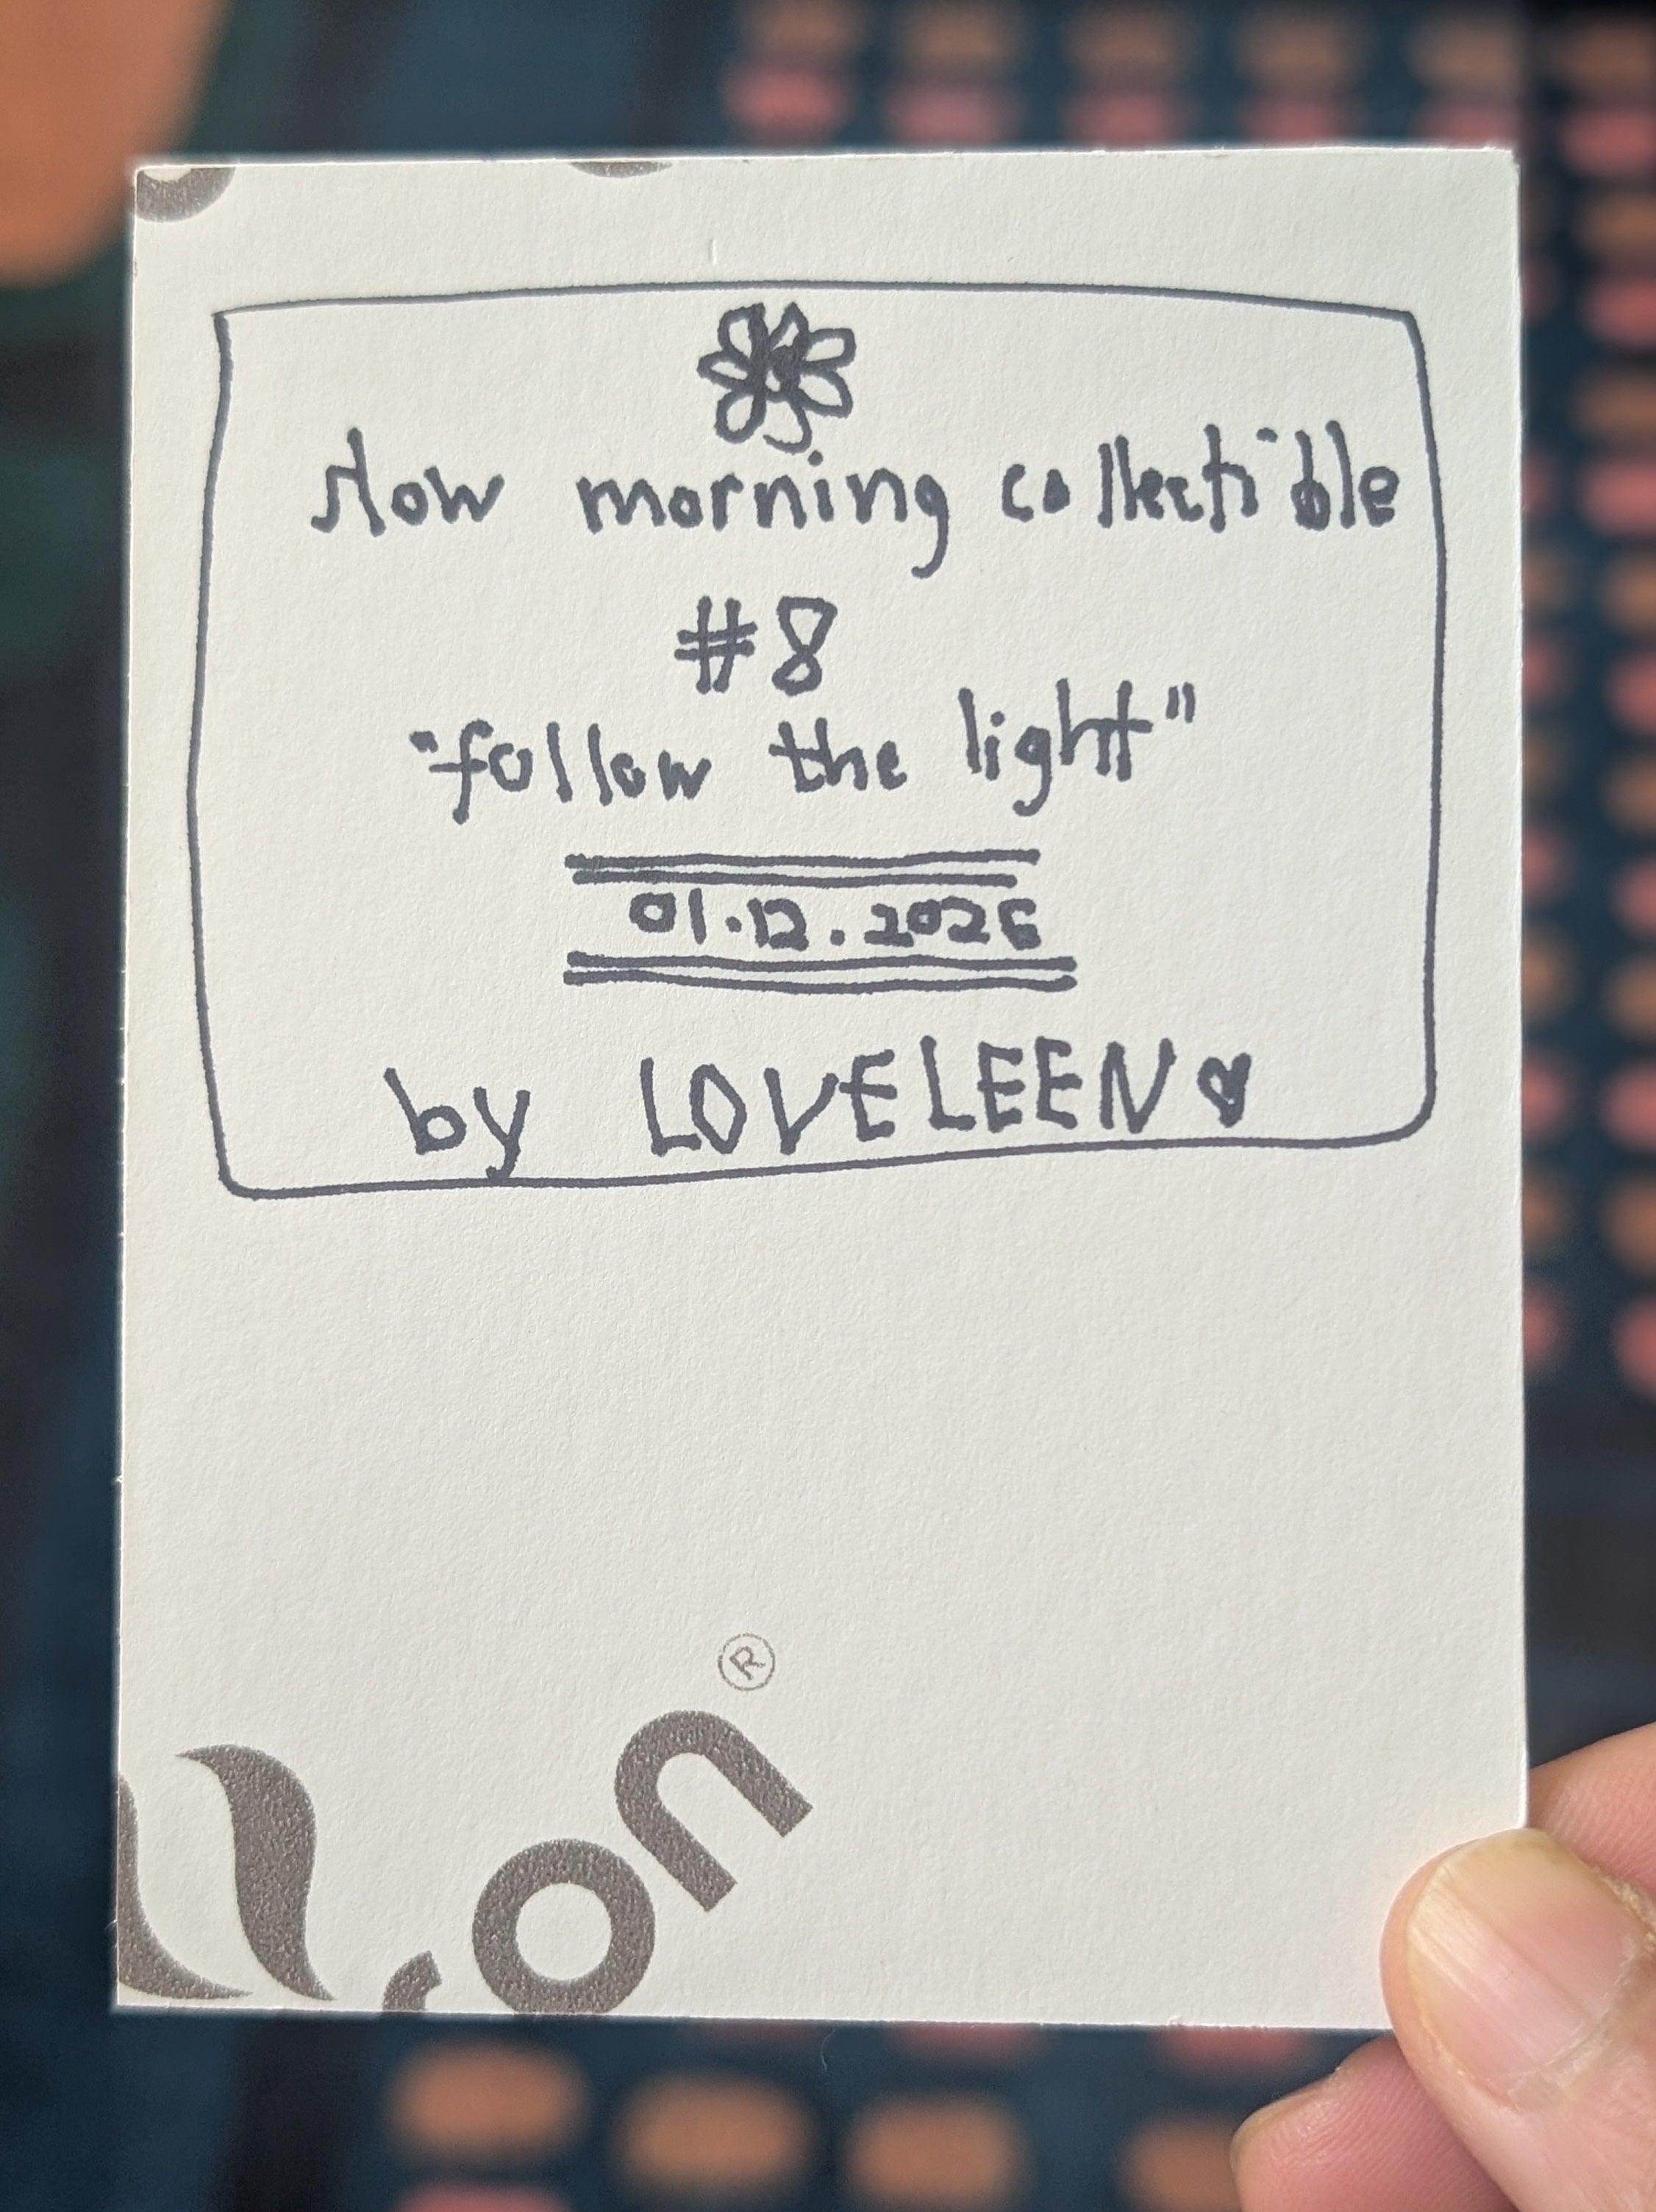 slow morning collectible
#8
"follow the light"
01.12.2026
by LOVELEEN
ron®